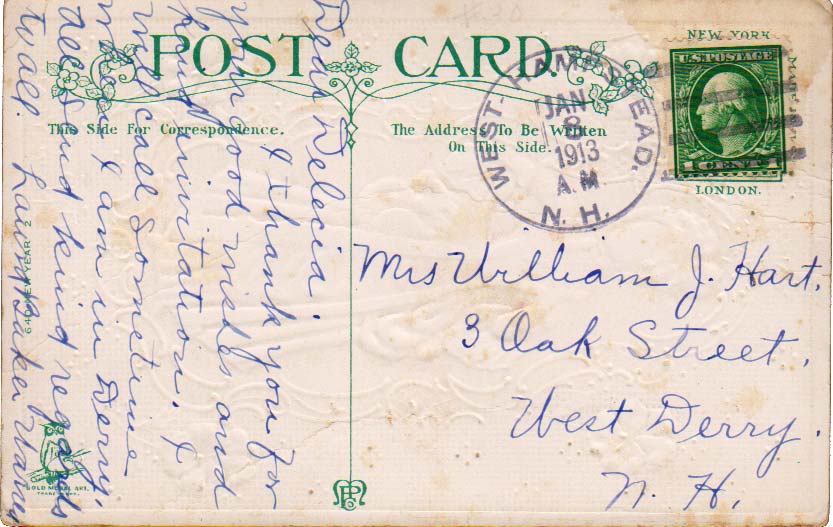 POST CARD.
NEW YORK
U.S. POSTAGE
1 CENT 1
LONDON.
WEST-HAMPSTEAD.
JAN
8
1913
A.M.
N.H.
This Side For Correspondence.
The Address To Be Written
On This Side.
Dear Delecia.
I thank you for
your good wishes and
kind invitation. I
will call sometime
when I am in Derry.
all send kind regards
to all.
Mrs William J. Hart.
3 Oak Street,
West Derry.
N. H.
640 NEW YEAR 2
GOLD MEDAL ART.
TRADE MARK.